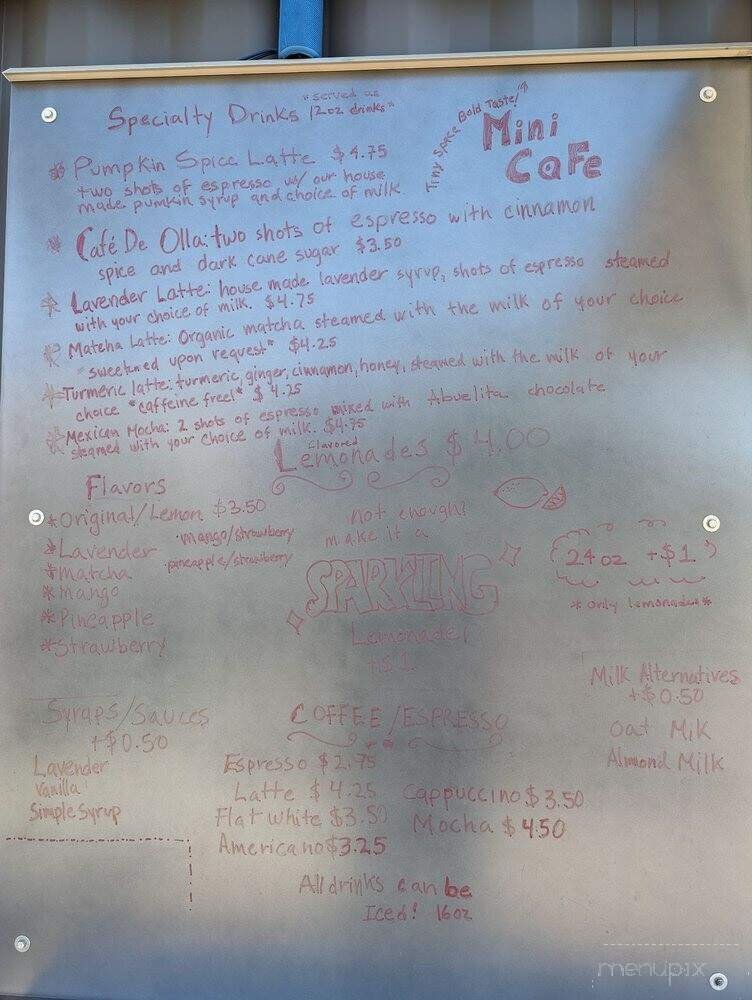 Specialty Drinks "served as
12oz drinks"
Tiny Space Bold Taste!"
Mini
CaFe
* Pumpkin Spice Latte $4.75
two shots of espresso w/ our house
made pumkin syrup and choice of milk
* Café De Olla: two shots of espresso with cinnamon
spice and dark cane sugar $3.50
* Lavender Latte: house made lavender syrup, shots of espresso steamed
with your choice of milk. $4.75
* Matcha Latte: Organic matcha steamed with the milk of your choice
"sweetened upon request" $4.25
* Turmeric latte: turmeric, ginger, cinnamon, honey, steamed with the milk of your
choice "caffeine free!" $4.25
* Mexican Mocha: 2 shots of espresso mixed with Abuelita chocolate
steamed with your choice of milk. $4.75
Flavored
Lemonades $4.00
Flavors
*Original/Lemon $3.50
*Lavender
*Matcha
*Mango
*Pineapple
*Strawberry
·mango/strawberry
·pineapple/strawberry
not enough?
make it a
SPARKLING
Lemonade!
+$1
24oz +$1
*only lemonades*
Milk Alternatives
+$0.50
Oat Milk
Almond Milk
Syrups/Sauces
+$0.50
Lavender
Vanilla
Simple Syrup
COFFEE/ESPRESSO
Espresso $2.75
Latte $4.25
Flat White $3.50
Americano $3.25
Cappuccino $3.50
Mocha $4.50
All drinks can be
Iced! 16oz
menupix